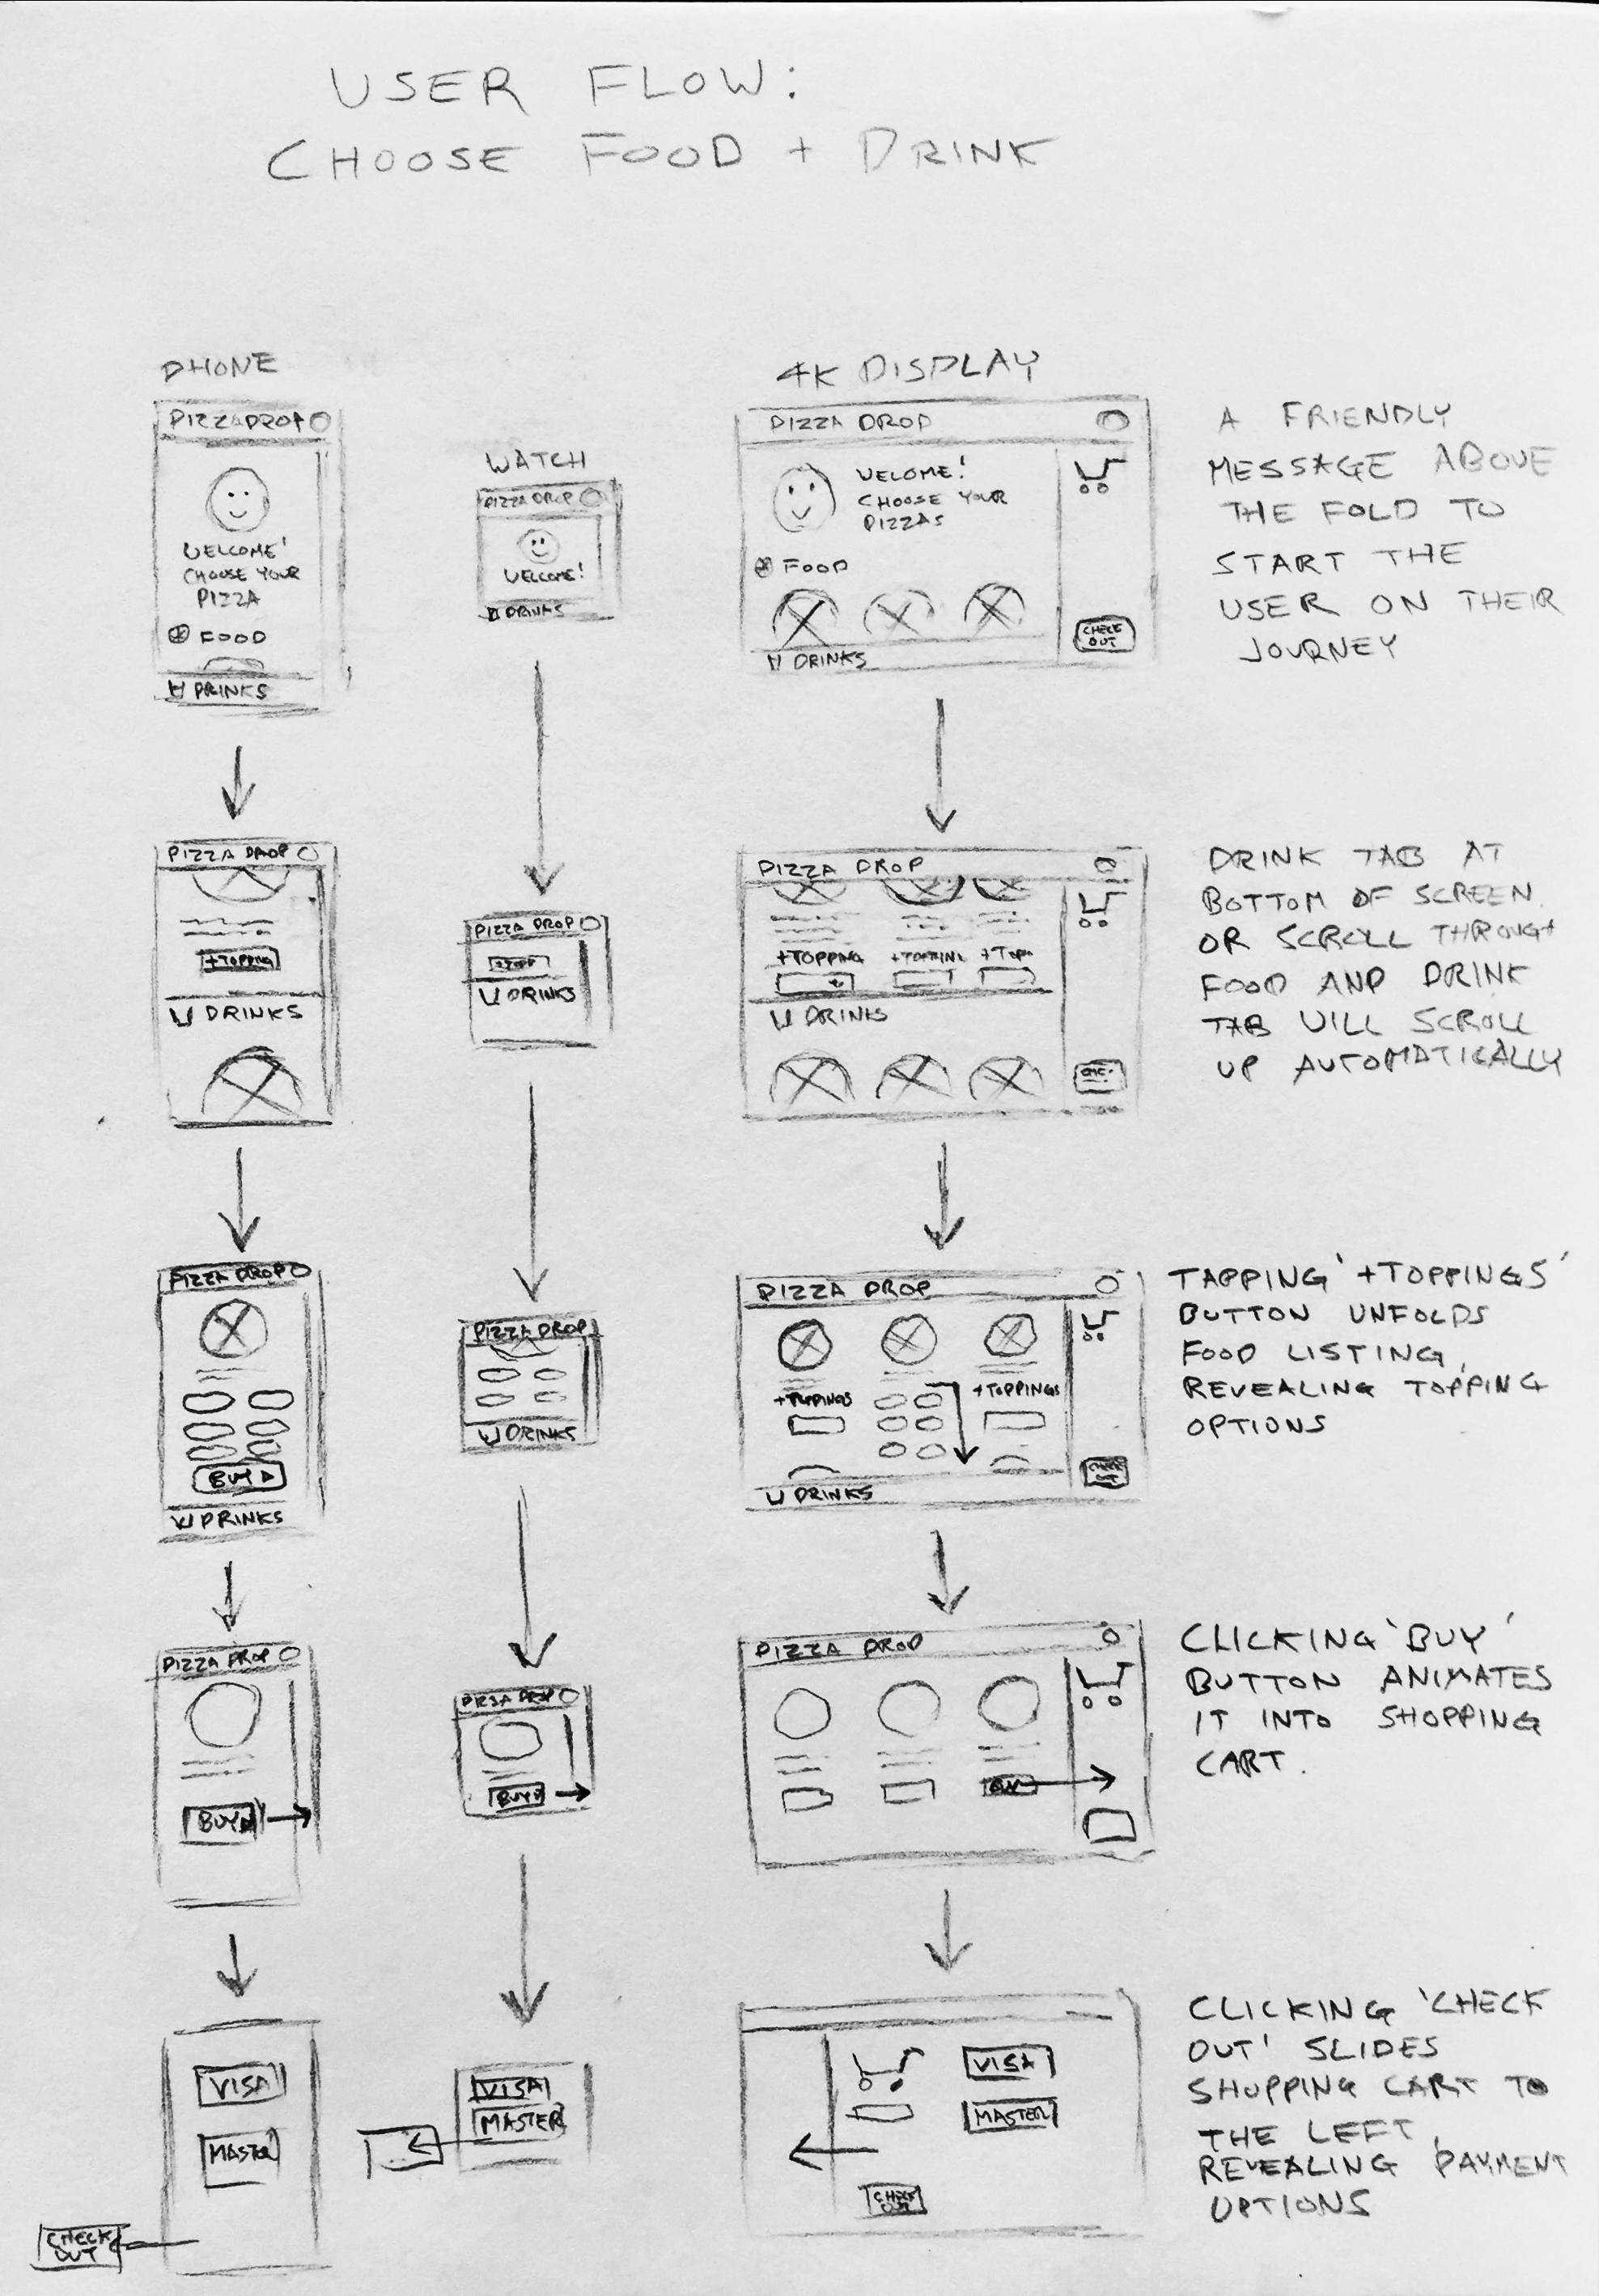 USER FLOW:
CHOOSE FOOD + DRINK
PHONE
PIZZA DROP
WELCOME!
CHOOSE YOUR
PIZZA
FOOD
DRINKS
WATCH
PIZZA DROP
WELCOME!
DRINKS
4K DISPLAY
PIZZA DROP
WELOME!
CHOOSE YOUR
PIZZAS
FOOD
DRINKS
CHECK
OUT
A FRIENDLY
MESSAGE ABOVE
THE FOLD TO
START THE
USER ON THEIR
JOURNEY
PIZZA DROP
+TOPPING
DRINKS
PIZZA DROP
DRINKS
PIZZA DROP
+TOPPING +TOPPING +TOPP
DRINKS
DRINK TAB AT
BOTTOM OF SCREEN.
OR SCROLL THROUGH
FOOD AND DRINK
TAB WILL SCROLL
UP AUTOMATICALLY
PIZZA DROP
BUY
DRINKS
PIZZA DROP
DRINKS
PIZZA DROP
+TOPPINGS +TOPPINGS
DRINKS
CHECK
OUT
TAPPING '+TOPPINGS'
BUTTON UNFOLDS
FOOD LISTING,
REVEALING TOPPING
OPTIONS
PIZZA DROP
BUY
PIZZA DROP
BUY
PIZZA DROP
BUY
CLICKING 'BUY'
BUTTON ANIMATES
IT INTO SHOPPING
CART.
VISA
MASTER
CHECK
OUT
VISA
MASTER
VISA
MASTER
CHECK
OUT
CLICKING 'CHECK
OUT' SLIDES
SHOPPING CART TO
THE LEFT,
REVEALING PAYMENT
OPTIONS